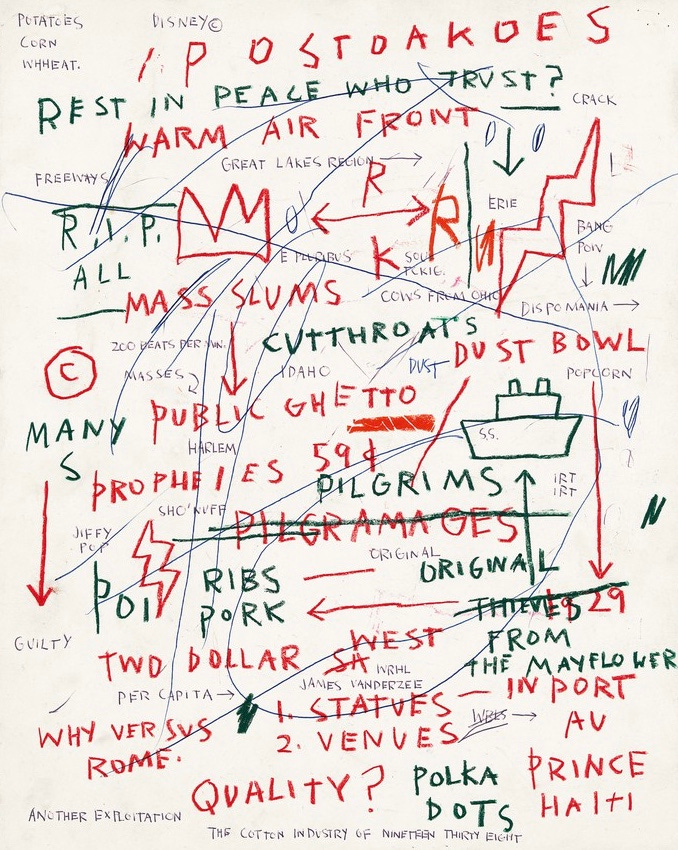 POTATOES
DISNEY©
CORN
WHHEAT.
POSTOAKOES
REST IN PEACE WHO TRUST?
CRACK
WARM AIR FRONT
GREAT LAKES REGION
FREEWAYS
R
R
ERIE
R.I.P.
E PLURIBUS
K
BANG
POW
ALL
COWS FROM OHIO
MASS SLUMS
DISPOMANIA
CUTTHROATS
DUST BOWL
DUST
©
MASSES
IDAHO
POPCORN
PUBLIC GHETTO
MANY
S
HARLEM
S.S.
59¢
PROPHEIES
PILGRIMS
IRT
IRT
SHO'NUFF
PILGRAMAGES
JIFFY
POP
ORIGINAL
ORIGINAL
POI
RIBS
PORK
THIEVES
29
GUILTY
WEST
FROM
TWO DOLLAR
SA
WRHL
THE MAYFLOWER
JAMES VANDERZEE
PER CAPITA
1. STATUES — IN PORT
WHY VERSUS
ROME.
2. VENUES
AU
QUALITY?
POLKA
DOTS
PRINCE
HAITI
ANOTHER EXPLOITATION
THE COTTON INDUSTRY OF NINETEEN THIRTY EIGHT